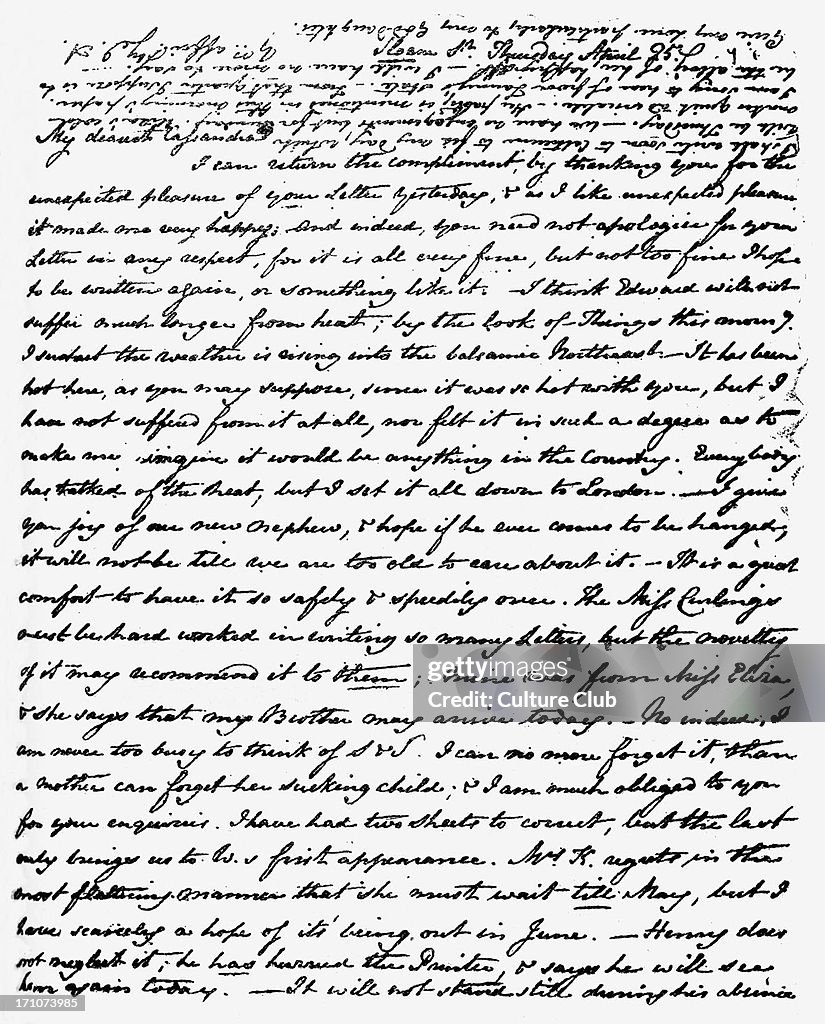 Sloane St. Thursday April 25.
My dearest Cassandra
I can return the compliment by thanking you for the
unexpected pleasure of your Letter yesterday, & as I like unexpected pleasure
it made me very happy; And indeed, you need not apologize for your
Letter in any respect, for it is all very fine, but not too fine I hope
to be written again, or something like it. — I think Edward will not
suffer much longer from heat; by the look of Things this morng.
I suspect the weather is rising into the balsamic Northeast. — It has been
hot here, as you may suppose, since it was so hot with you, but I
have not suffered from it at all, nor felt it in such a degree as to
make me imagine it would be anything in the Country. Everybody
has talked of the heat, but I set it all down to London. — I give
you joy of our new nephew, & hope if he ever comes to be hanged,
it will not be till we are too old to care about it. — It is a great
comfort to have it so safely & speedily over. The Miss Curlings
must be hard worked in writing so many Letters, but the novelty
of it may recommend it to them; mine was from Miss Eliza,
& she says that my Brother may arrive today. — No indeed, I
am never too busy to think of S & S. I can no more forget it, than
a mother can forget her sucking child; & I am much obliged to you
for your enquiries. I have had two sheets to correct, but the last
only brings us to W.s first appearance. Mrs. K. regrets in the
most flattering manner that she must wait till May, but I
have scarcely a hope of its being out in June. — Henry does
not neglect it; he has hurried the Printer, & says he will see
him again today. — It will not stand still during his absence
I shall write soon to Catherine to fix my day, which
will be Thursday. — We have no engagements but for Sunday. Eliza's cold
makes quiet adviseable. — Her party is mentioned in this morning's paper. —
I am sorry to hear of poor Fanny's state. — From that quarter I suppose is to
be the alloy of her happiness. — I will have no more to say. —
Yrs. affecly J. A
Give my love particularly to my God-Daughter.
gettyimages
Credit: Culture Club
171073985